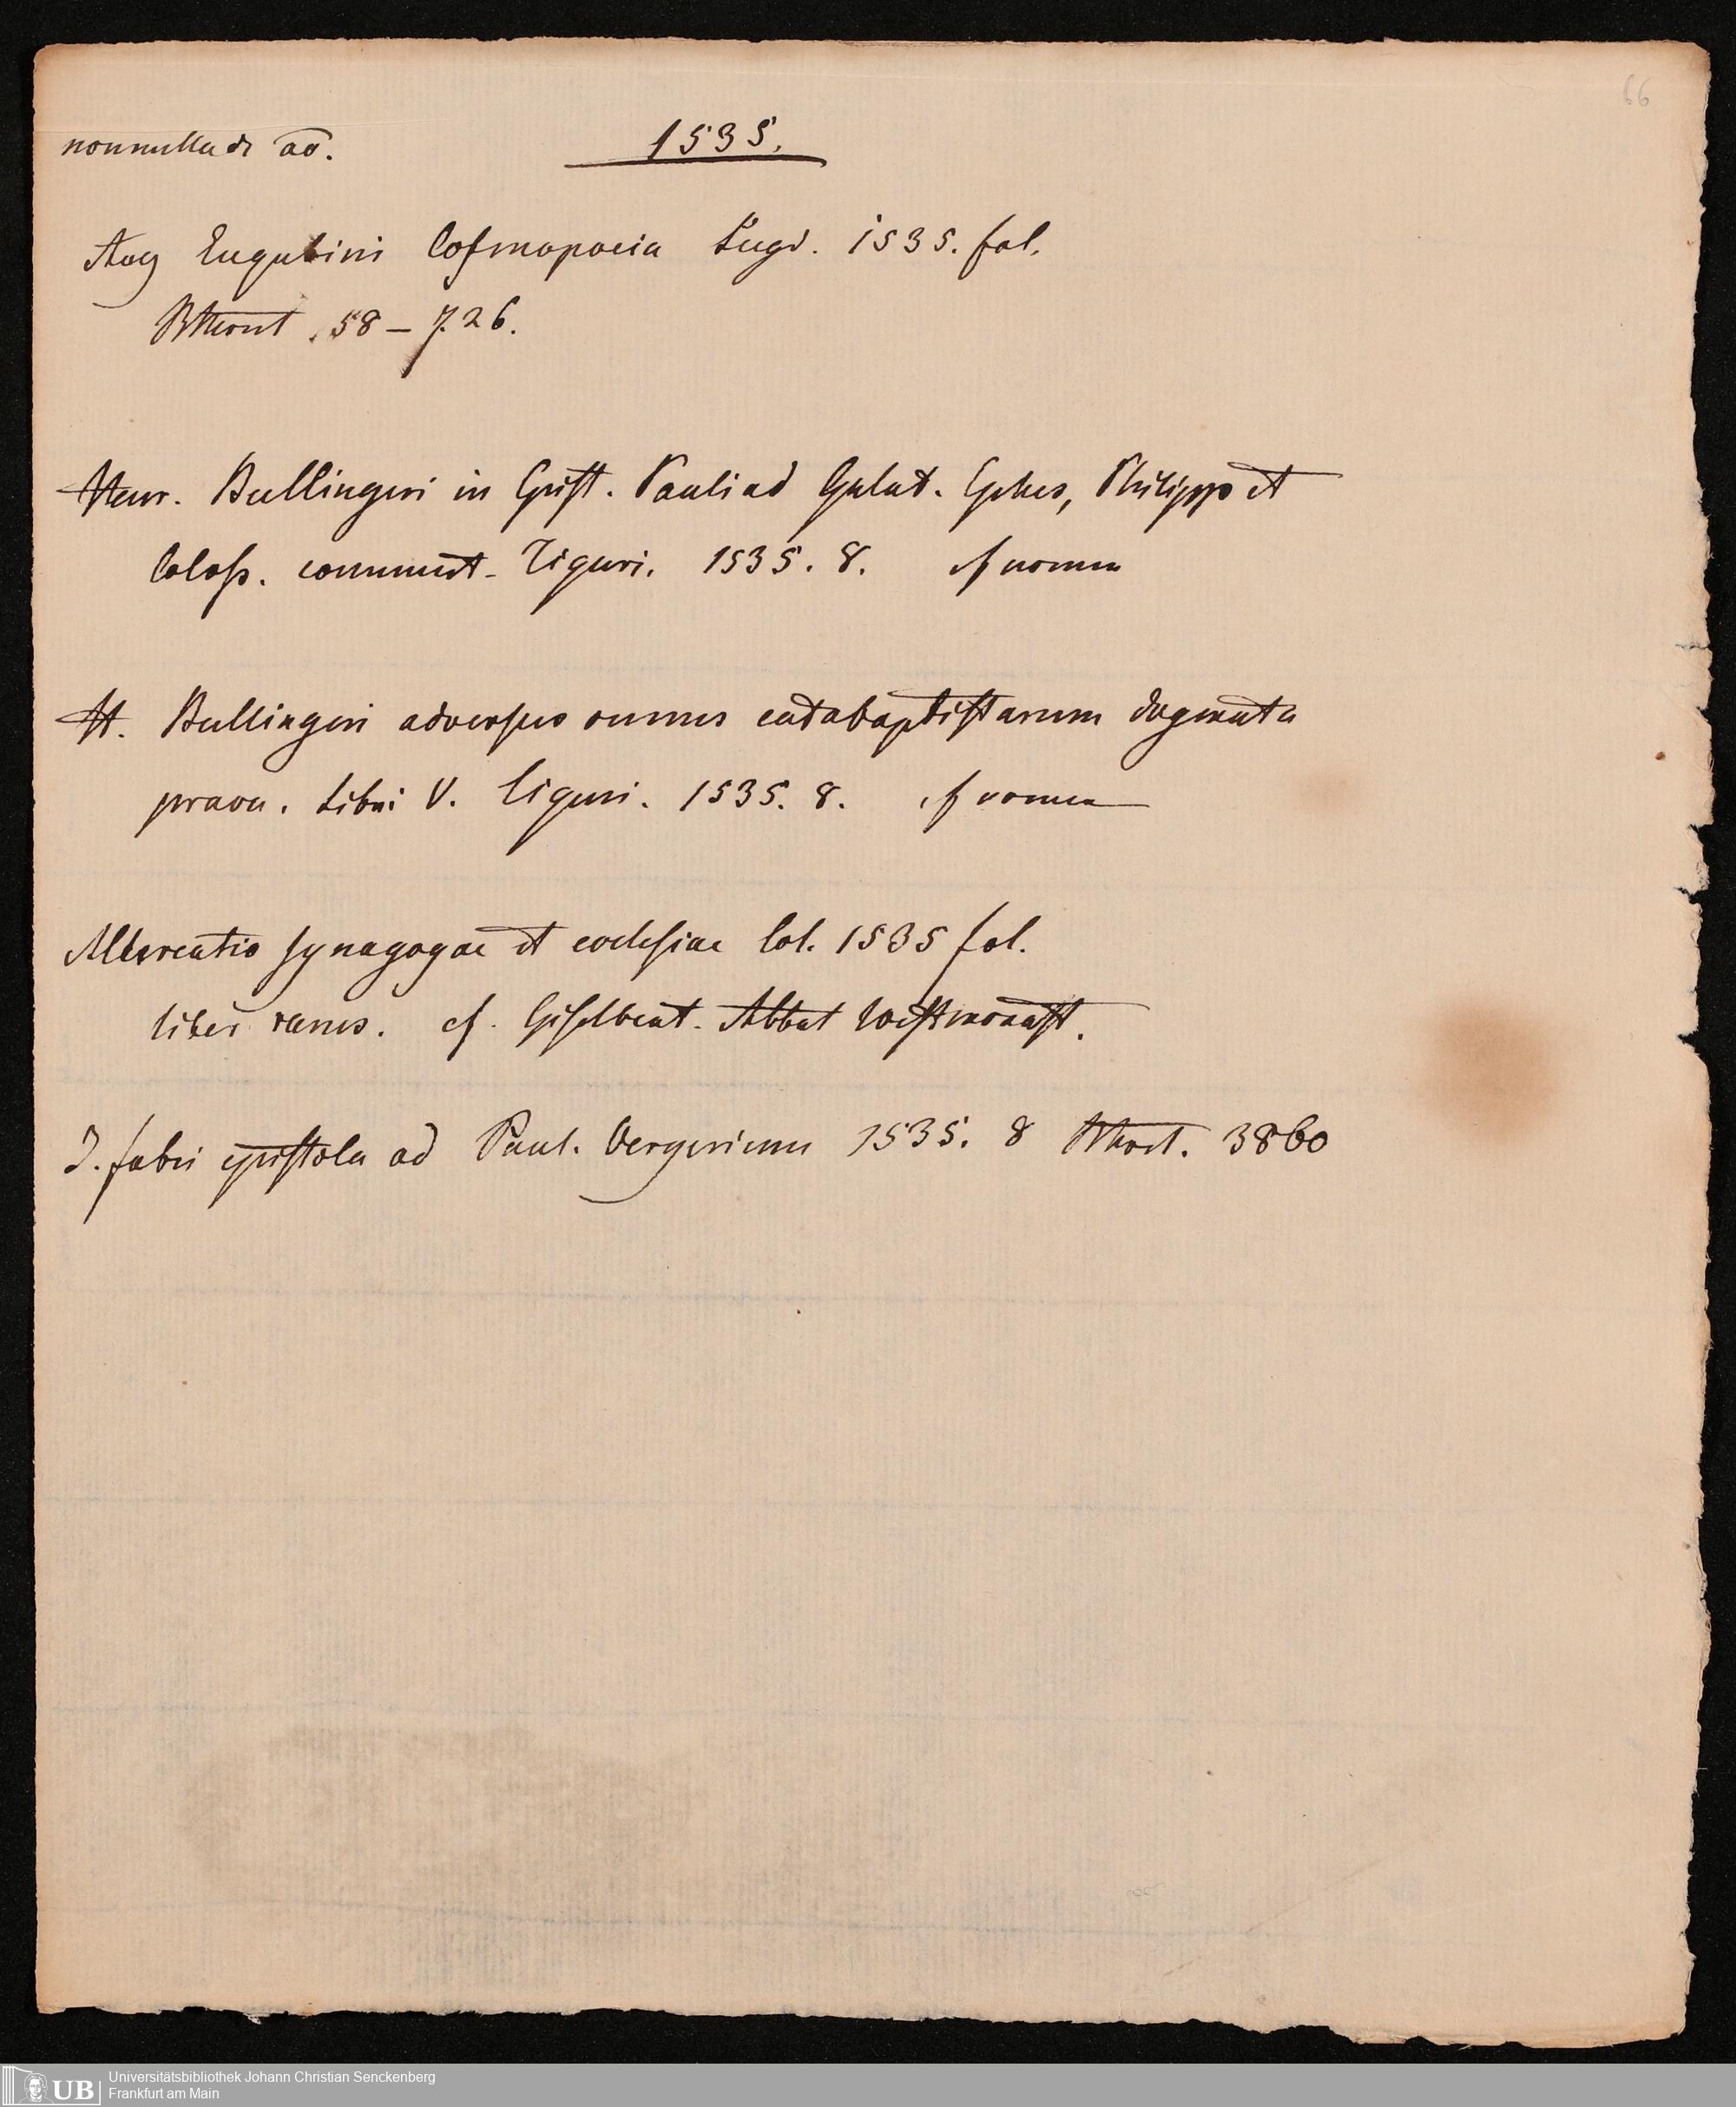 66
nonnulla de ao. 1535.
Aug Eugubini Cosmopoeia Lugd. 1535. fol.
58 – 726.
Henr. Bullingeri in Epist. Pauli ad Galat. Ephes, Philipp et
Coloss. comment. Tiguri. 1535. 8. cf nomen
H. Bullingeri adversus omnes catabaptistarum dogmata
prava. Libri V. Tiguri. 1535. 8. cf nomen
Altercatio synagogae et ecclesiae Col. 1535 fol.
liber rarus. cf. Giselbert. Abbat Westmonast.
J. Fabri epistola ad Paul. Vergerium 1535. 8 3860
UB Universitätsbibliothek Johann Christian Senckenberg
Frankfurt am Main